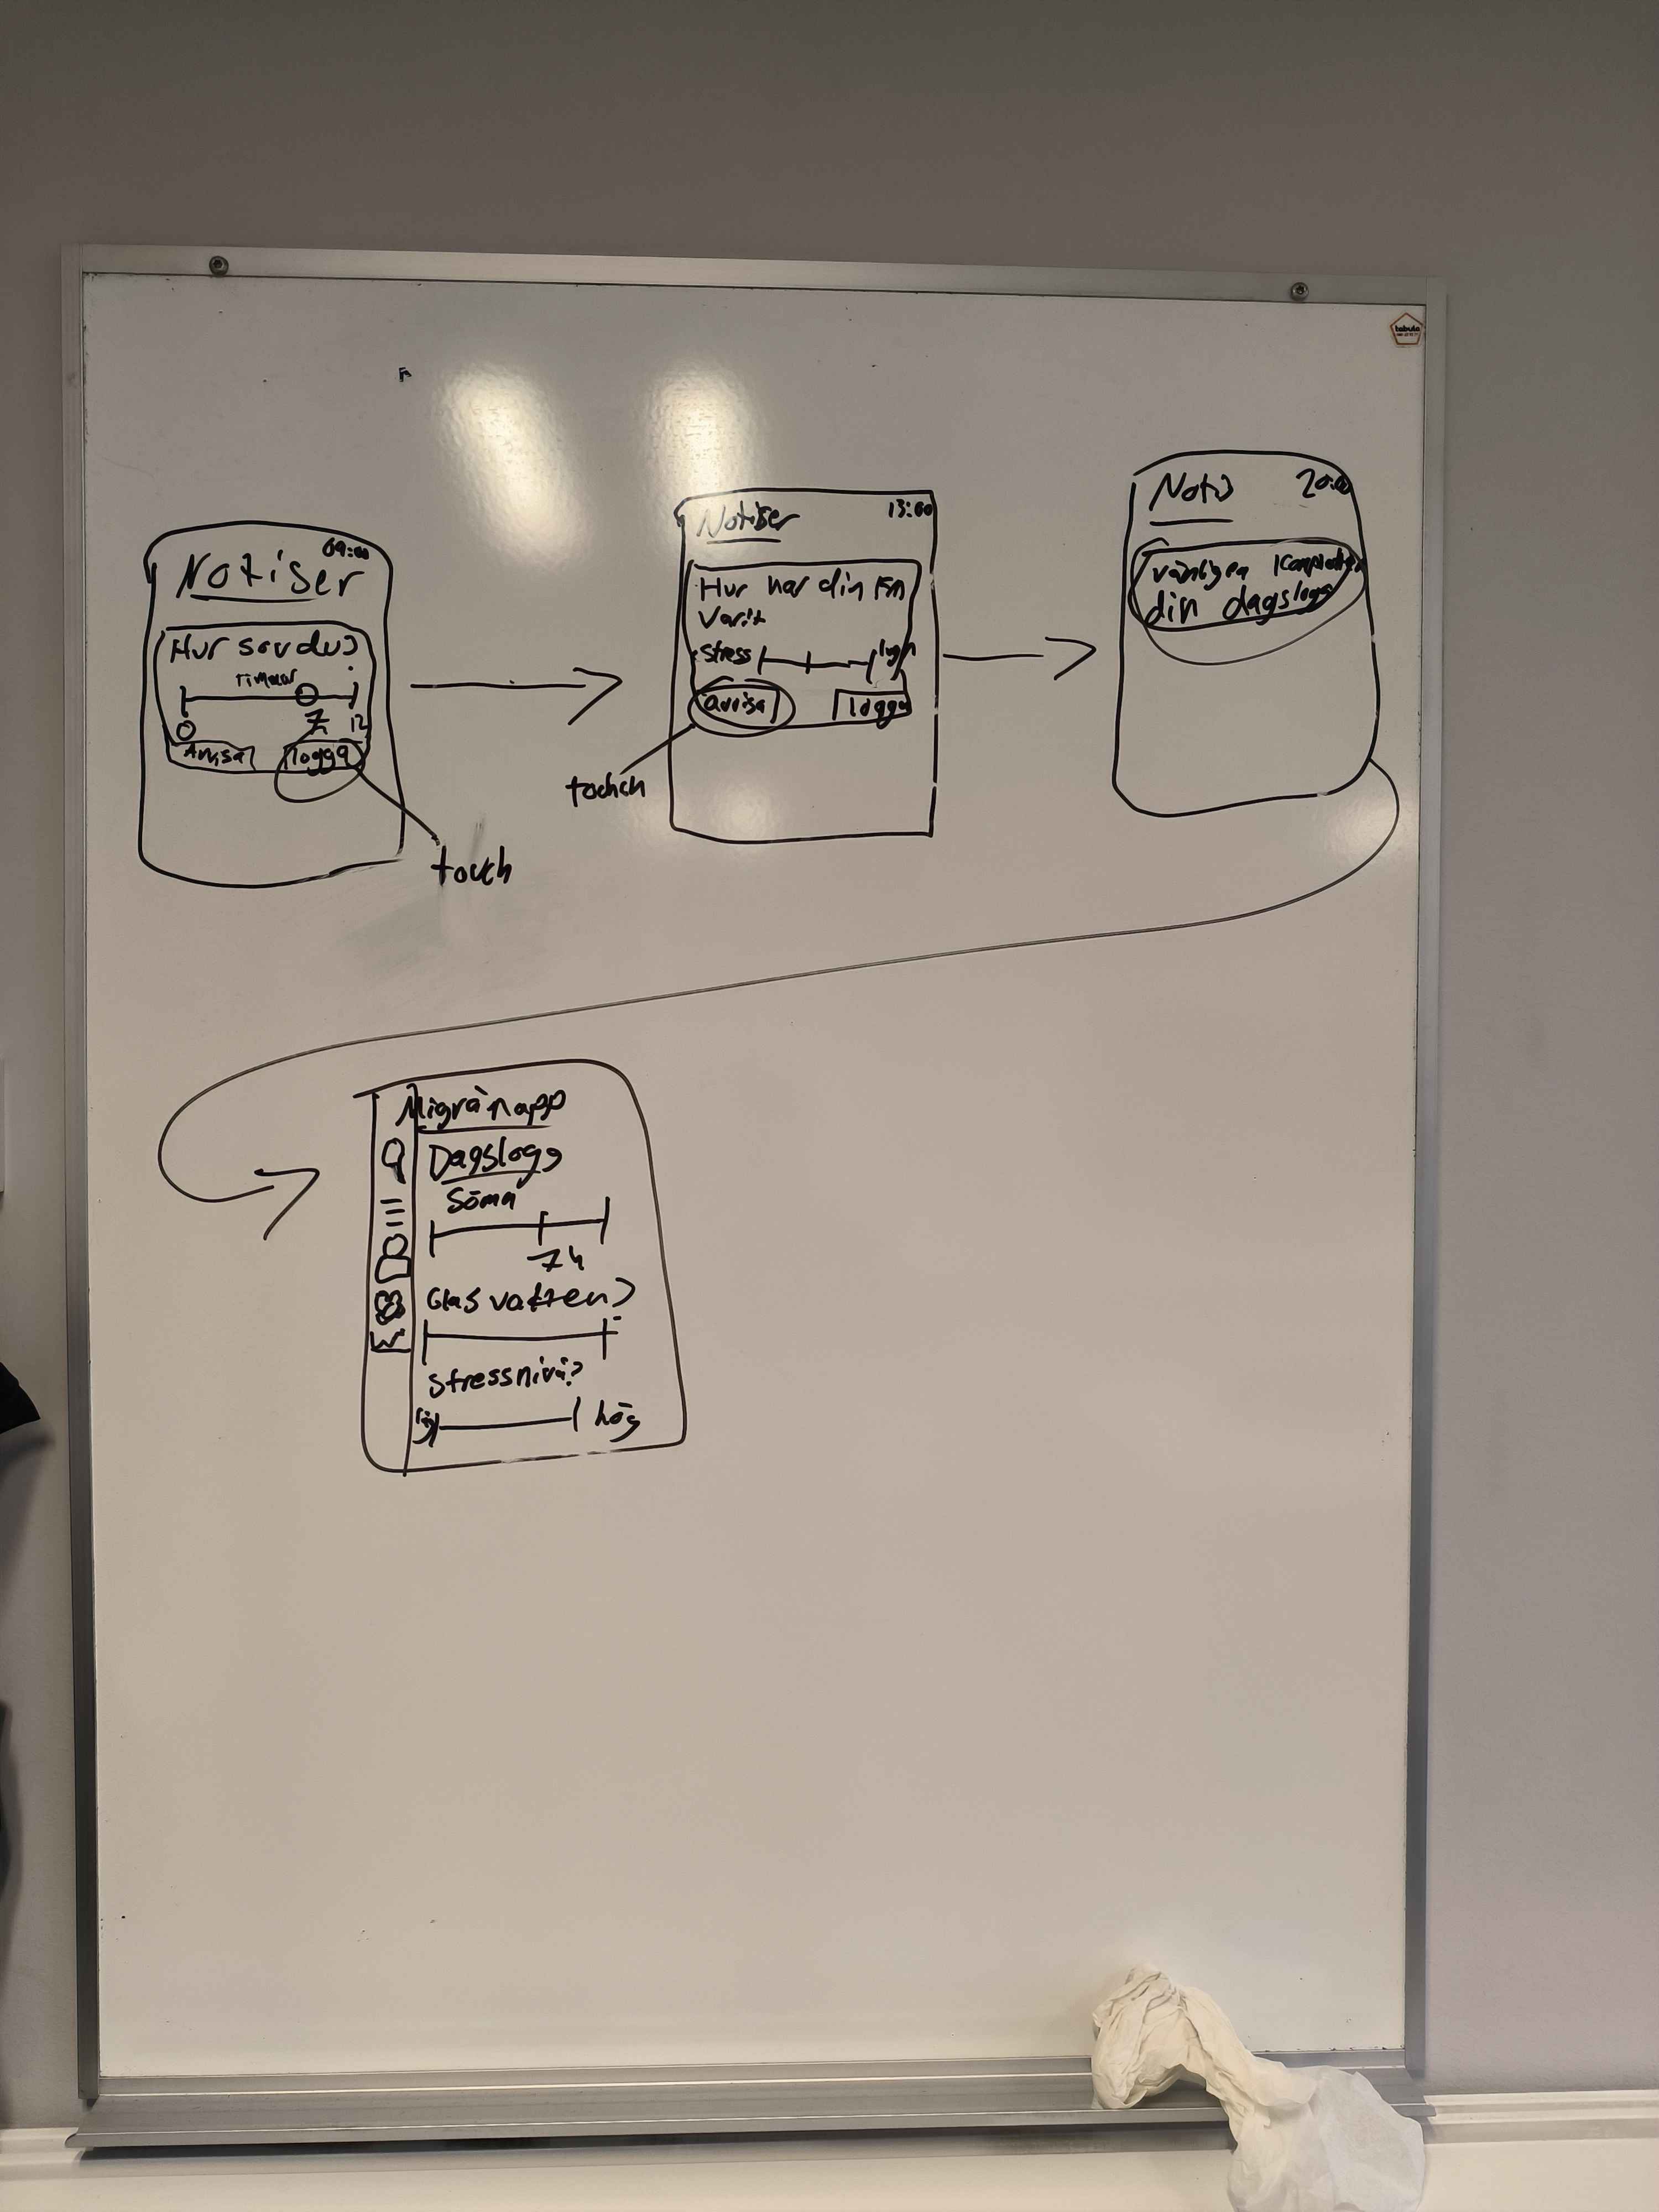 tabula
09:00
Notiser
Hur sov du?
Timmar
0 7 12
Avvisa logga
touch
13:00
Notiser
Hur har din fm
varit
stress lugn
avvisa logga
touhch
Notis 20:00
vänligen
din dagslogg
Migränapp
Dagslogg
Sömn
7h
Glas vatten?
Stressnivå?
låg hög